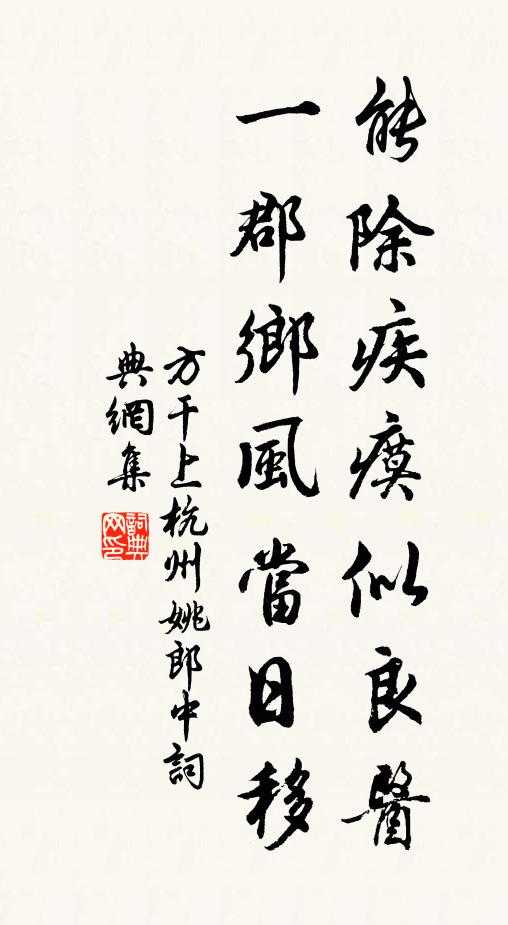 能除疾瘼似良醫
一郡鄉風當日移
方干上杭州姚郎中詞
典網集
詞典網印